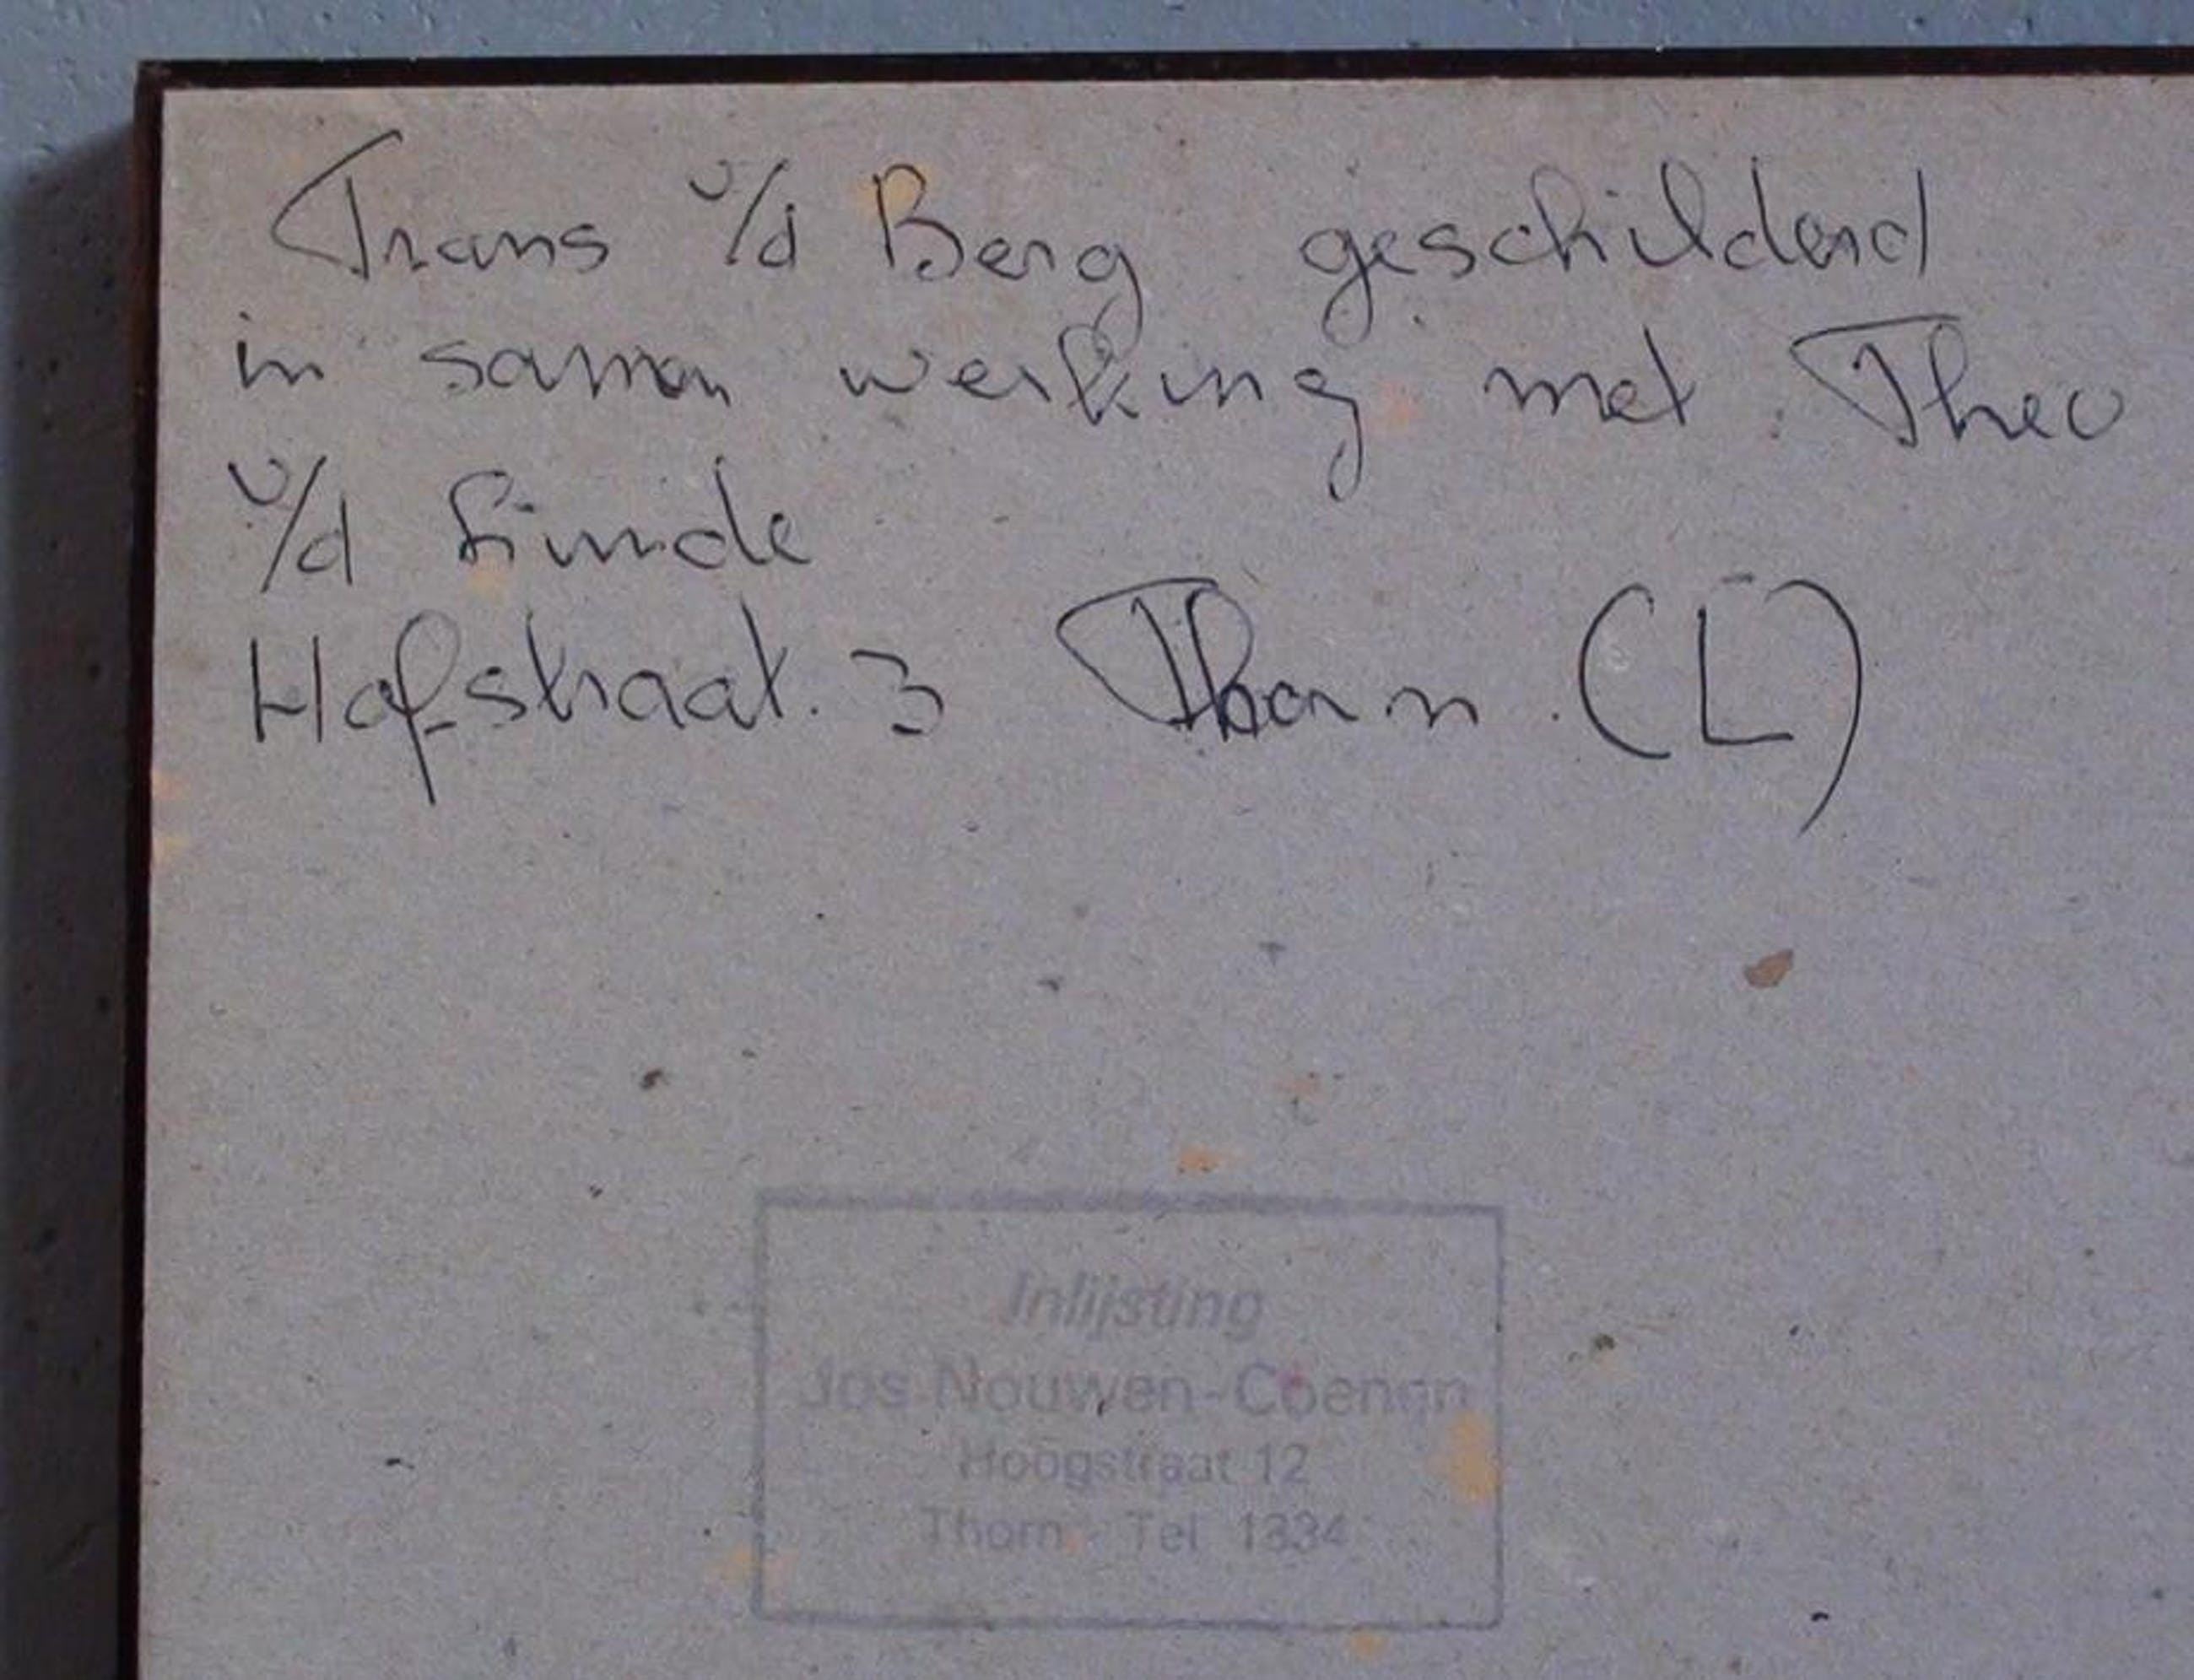 Frans v/d Berg geschilderd
in samen werking met Theo
v/d Linde
Hofstraat. 3 Thorn. (L)
Inlijsting
Jos Nouwen-Coenen
Hoogstraat 12
Thorn - Tel 1334